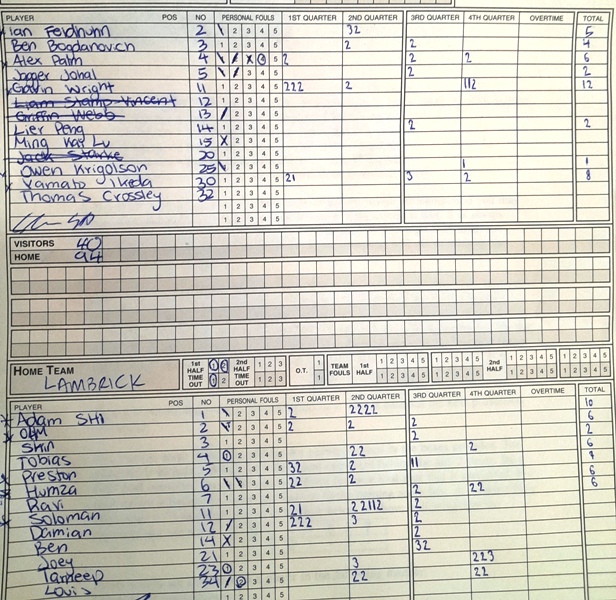 PLAYER POS NO PERSONAL FOULS 1ST QUARTER 2ND QUARTER 3RD QUARTER 4TH QUARTER OVERTIME TOTAL
Ian Feldhunn 2 1 2 3 4 5 32 5
Ben Bogdanovich 3 1 2 3 4 5 2 2 4
Alex Palm 4 2 2 2 6
Jagger Johal 5 3 4 5 2 2
Gavin Wright 11 1 2 3 4 5 222 2 112 12
Liam Stamp-Vincent 12 1 2 3 4 5
Griffin Webb 13 2 3 4 5
Lier Peng 14 1 2 3 4 5 2 2
Ming Kay Lu 15 2 3 4 5
Jack Starke 20 1 2 3 4 5
Owen Krigolson 25 2 3 4 5 1 1
Yamato Ikeda 30 1 2 3 4 5 21 3 2 8
Thomas Crossley 32 1 2 3 4 5
1 2 3 4 5
VISITORS 40
HOME 94
HOME TEAM LAMBRICK
1st HALF TIME OUT 2nd HALF TIME OUT 1 2 3 O.T. 1 TEAM FOULS 1st HALF 1 2 3 4 5 2nd HALF 1 2 3 4 5
PLAYER POS NO PERSONAL FOULS 1ST QUARTER 2ND QUARTER 3RD QUARTER 4TH QUARTER OVERTIME TOTAL
Adam SHI 1 2 3 4 5 2 2222 10
2 3 4 5 2 2 2 6
Shin 3 1 2 3 4 5 2 2
Tobias 4 2 3 4 5 22 2 6
Preston 5 1 2 3 4 5 32 2 11
Humza 6 3 4 5 22 2 6
Ravi 7 1 2 3 4 5 2 22 6
Soloman 11 1 2 3 4 5 21 22112 2
Damian 12 2 3 4 5 222 3 2
Ben 14 2 3 4 5 2
Joey 21 1 2 3 4 5 32
Tandeep 23 2 3 4 5 3 223
Louis 34 3 4 5 22 22